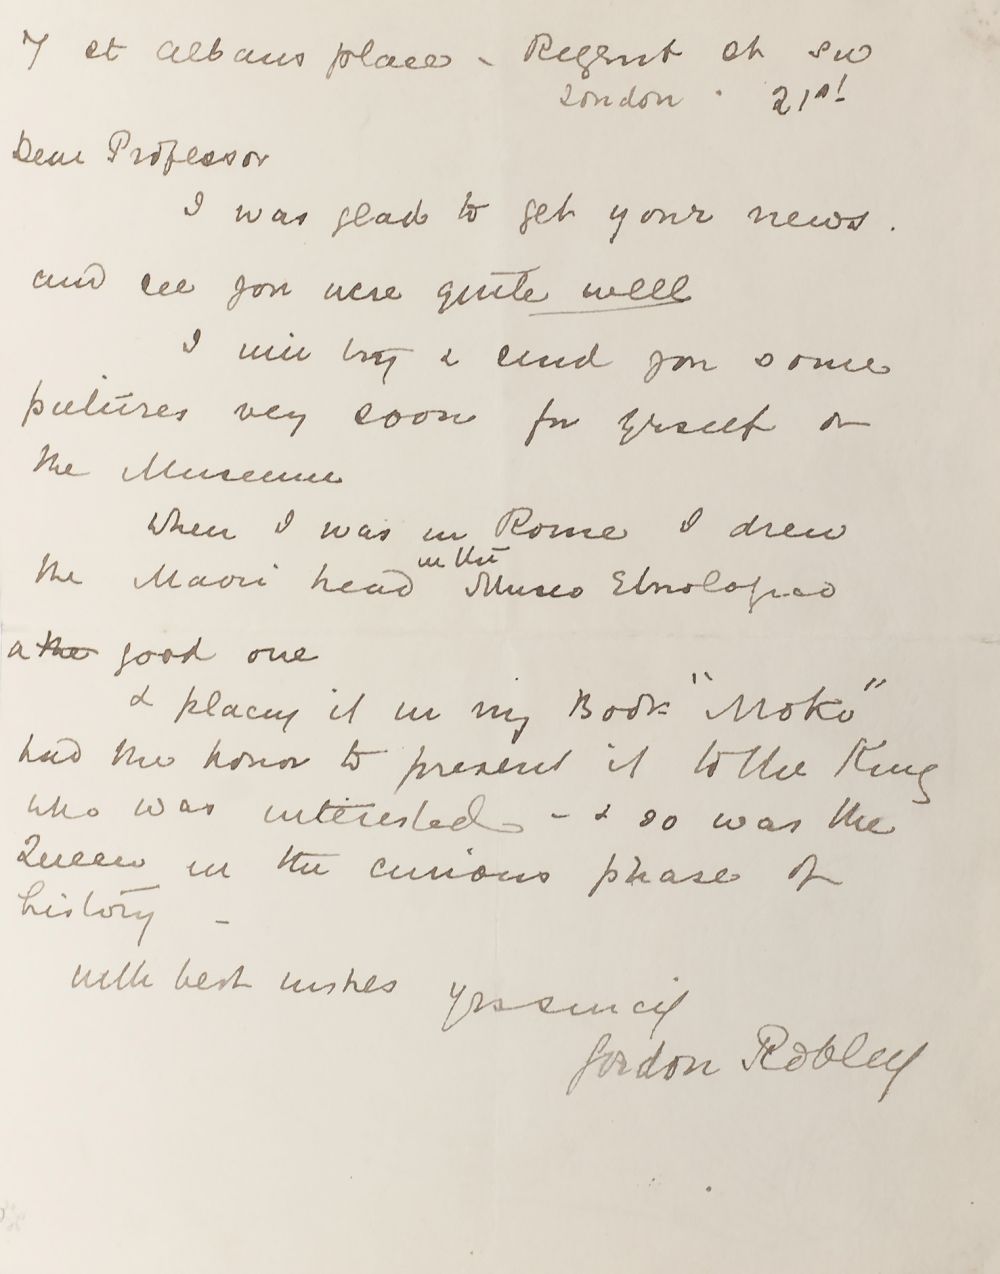 7 St Albans place - Regent St SW
London . 21st
Dear Professor
I was glad to get your news.
and see you were quite well
I will try & send you some
pictures very soon for yrself or
the Museum
When I was in Rome I drew
the Maori head in the Museo Etnologico
a the good one
& placing it in my Book "Moko"
had the honor to present it to the King
who was interested - & so was the
Queen in the curious phase of
history -
with best wishes yrs sincly
Gordon Robley